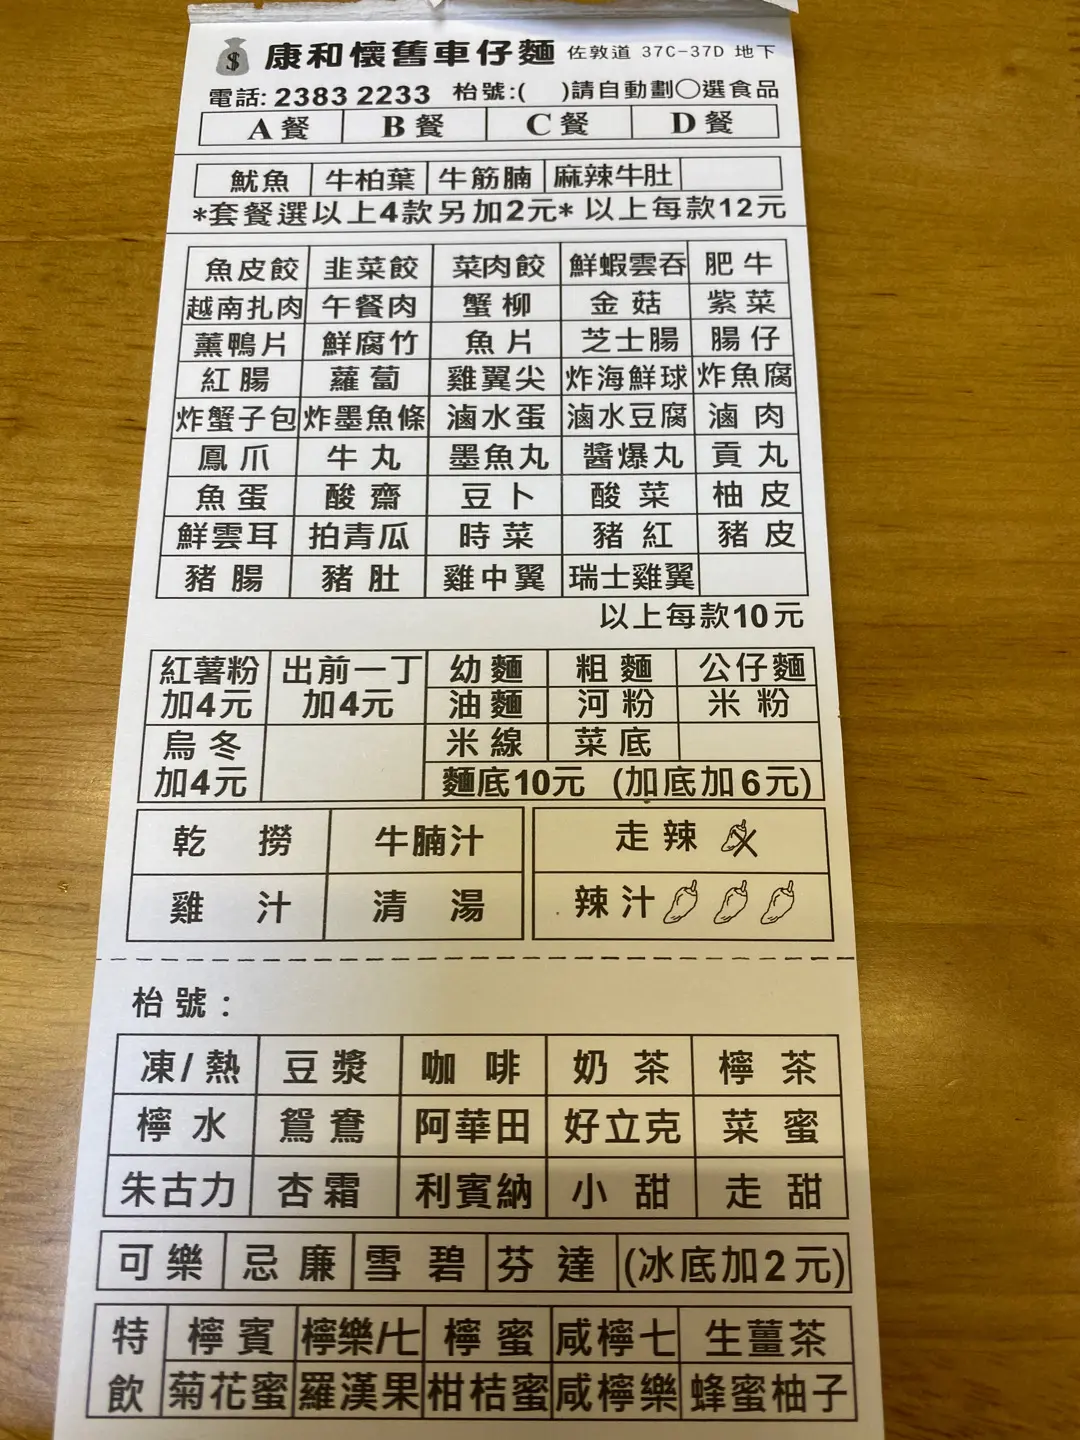 康和懷舊車仔麵 佐敦道 37C-37D 地下
電話: 2383 2233 枱號:( )請自動劃○選食品
A 餐 B 餐 C 餐 D 餐
魷魚 牛柏葉 牛筋腩 麻辣牛肚
*套餐選以上4款另加2元* 以上每款12元
魚皮餃 韭菜餃 菜肉餃 鮮蝦雲吞 肥牛
越南扎肉 午餐肉 蟹柳 金菇 紫菜
薰鴨片 鮮腐竹 魚片 芝士腸 腸仔
紅腸 蘿蔔 雞翼尖 炸海鮮球 炸魚腐
炸蟹子包 炸墨魚條 滷水蛋 滷水豆腐 滷肉
鳳爪 牛丸 墨魚丸 醬爆丸 貢丸
魚蛋 酸齋 豆卜 酸菜 柚皮
鮮雲耳 拍青瓜 時菜 豬紅 豬皮
豬腸 豬肚 雞中翼 瑞士雞翼
以上每款10元
紅薯粉 出前一丁 幼麵 粗麵 公仔麵
加4元 加4元 油麵 河粉 米粉
烏冬 米線 菜底
加4元 麵底10元 (加底加6元)
乾撈 牛腩汁 走辣
雞汁 清湯 辣汁
枱號：
凍/熱 豆漿 咖啡 奶茶 檸茶
檸水 鴛鴦 阿華田 好立克 菜蜜
朱古力 杏霜 利賓納 小甜 走甜
可樂 忌廉 雪碧 芬達 (冰底加2元)
特 檸賓 檸樂/七 檸蜜 咸檸七 生薑茶
飲 菊花蜜 羅漢果 柑桔蜜 咸檸樂 蜂蜜柚子